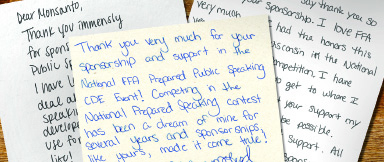 Dear Monsanto,
Thank you immensly
for spons
Public Sp
I have l
deal a
speakin
develop
use for
like!
Thank you very much for your
sponsorship and support in the
National FFA Prepared Public Speaking
CDE Event! Competing in the
National Prepared Speaking contest
has been a dream of mine for
several years and sponsorships,
like yours, made it come true!
say thank you so
very much
sponsorship. I love FFA
had the honors this
isconsin in the National
ompetition. I have
to get to where I
your support my
be possible.
support. All